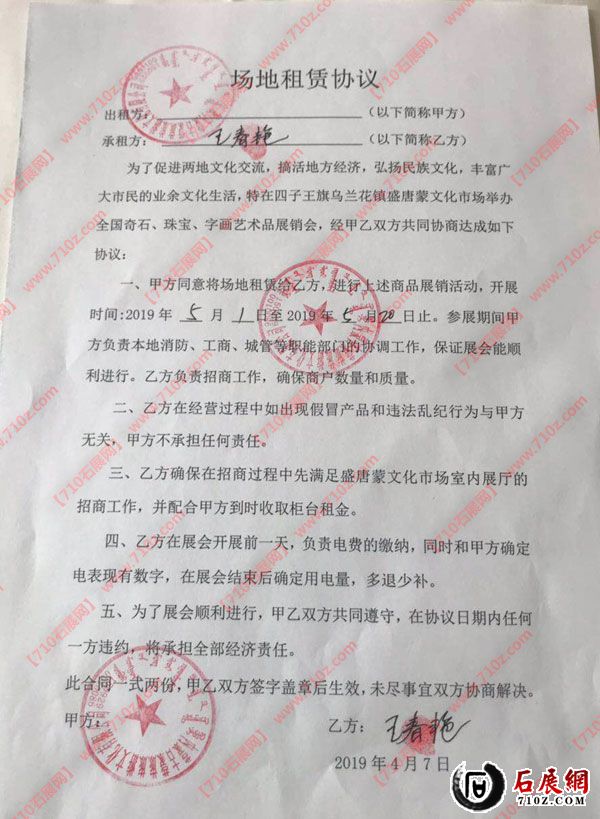 场地租赁协议
出租方：（以下简称甲方）
承租方：王春艳（以下简称乙方）
为了促进两地文化交流，搞活地方经济，弘扬民族文化，丰富广
大市民的业余文化生活，特在四子王旗乌兰花镇盛唐蒙文化市场举办
全国奇石、珠宝、字画艺术品展销会，经甲乙双方共同协商达成如下
协议：
一、甲方同意将场地租赁给乙方，进行上述商品展销活动，开展
时间:2019年 5 月 1 日至2019年 5 月 20 日止。参展期间甲
方负责本地消防、工商、城管等职能部门的协调工作，保证展会能顺
利进行。乙方负责招商工作，确保商户数量和质量。
二、乙方在经营过程中如出现假冒产品和违法乱纪行为与甲方
无关，甲方不承担任何责任。
三、乙方确保在招商过程中先满足盛唐蒙文化市场室内展厅的
招商工作，并配合甲方到时收取柜台租金。
四、乙方在展会开展前一天，负责电费的缴纳，同时和甲方确定
电表现有数字，在展会结束后确定用电量，多退少补。
五、为了展会顺利进行，甲乙双方共同遵守，在协议日期内任何
一方违约，将承担全部经济责任。
此合同一式两份，甲乙双方签字盖章后生效，未尽事宜双方协商解决。
甲方： 乙方：王春艳
2019年4月7日
【710石展网】www.710z.com
石展網
710Z.COM